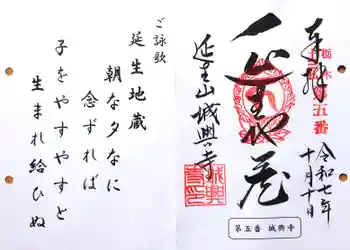 奉拝
栃木
五番
延生地蔵
延生山城興寺
令和七年
十月十日
城興寺
第五番 城興寺
ご詠歌
延生地蔵
朝な夕なに
念ずれば
子をやすやすと
生まれ給ひぬ